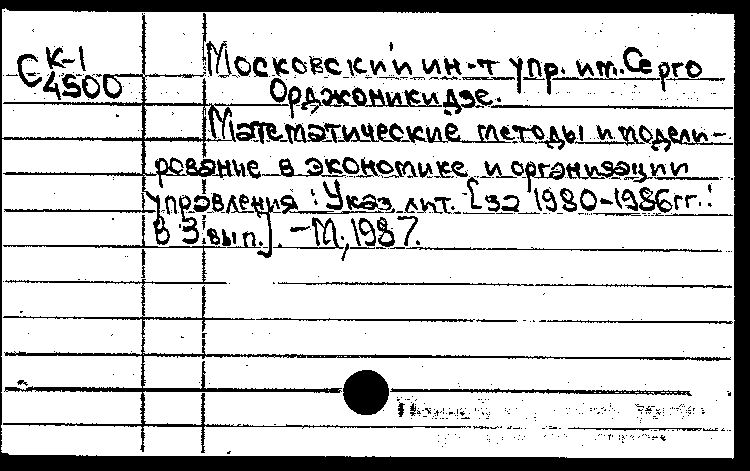 С К-1
4500
Московский ин-т упр. им. Серго
Орджоникидзе.
Математические методы и модели-
рование в экономике и организации
управления : Указ. лит. [за 1980-1986гг.:
в 3 вып.]. - М., 1987.